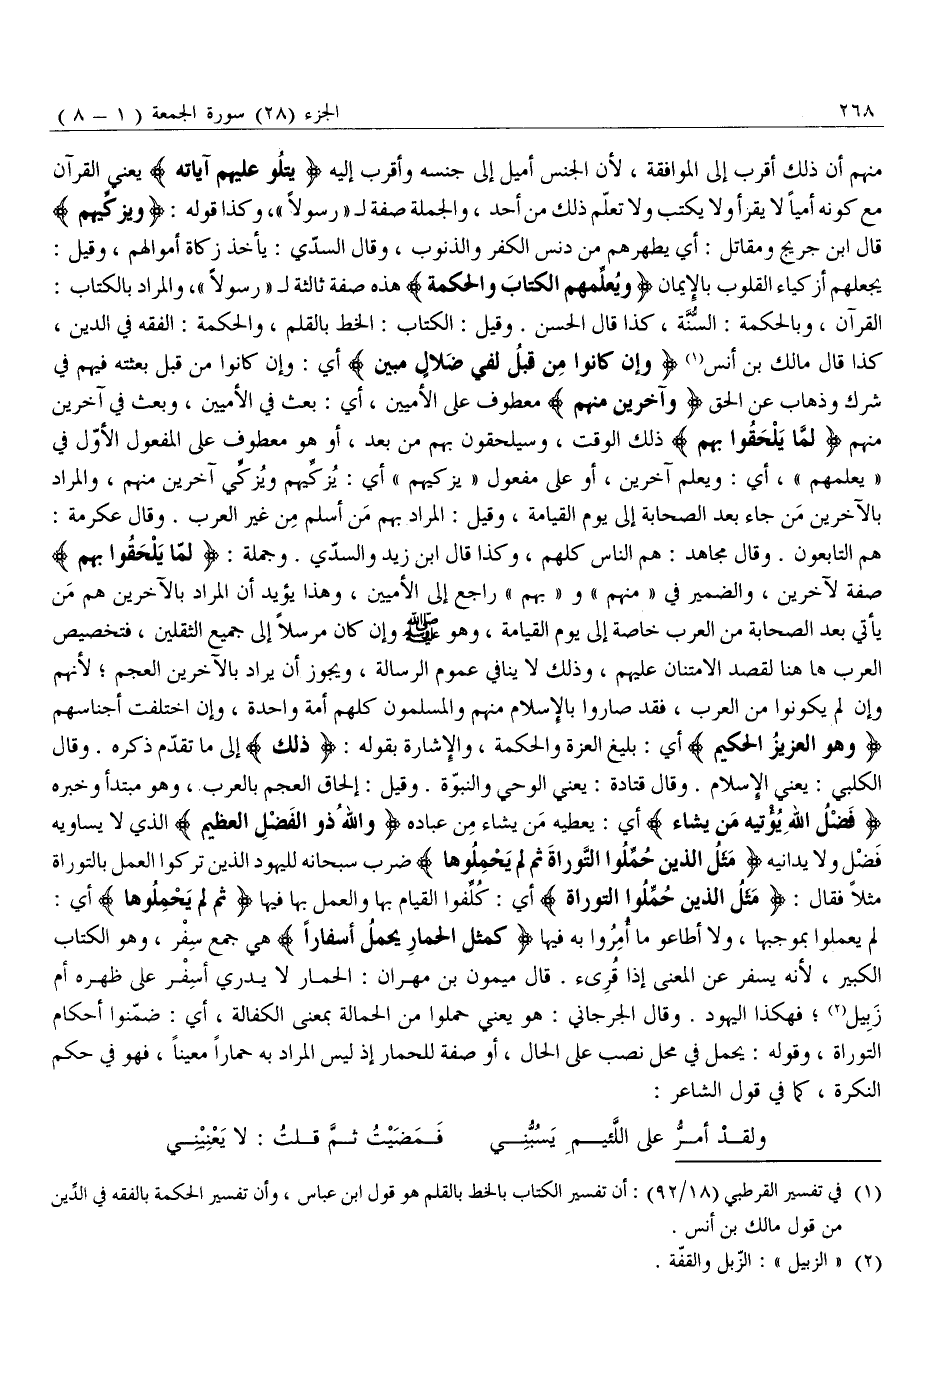 ٢٦٨ الجزء (٢٨) سورة الجمعة ( ١ – ٨ )
منهم أن ذلك أقرب إلى الموافقة ، لأن الجنس أميل إلى جنسه وأقرب إليه ﴿ يتلُو عليهم آياته ﴾ يعني القرآن
مع كونه أمياً لا يقرأ ولا يكتب ولا تعلّم ذلك من أحد ، والجملة صفة لـ « رسولاً »، وكذا قوله : ﴿ ويزكِّيهم ﴾
قال ابن جريج ومقاتل : أي يطهرهم من دنس الكفر والذنوب ، وقال السدّي : يأخذ زكاة أموالهم ، وقيل :
يجعلهم أزكياء القلوب بالإيمان ﴿ ويُعلِّمهم الكتابَ والحكمة ﴾ هذه صفة ثالثة لـ « رسولاً »، والمراد بالكتاب :
القرآن ، وبالحكمة : السنُّة ، كذا قال الحسن . وقيل : الكتاب : الخط بالقلم ، والحكمة : الفقه في الدين ،
كذا قال مالك بن أنس(١) ﴿ وإن كانوا مِن قبلُ لفي ضلالٍ مبين ﴾ أي : وإن كانوا من قبل بعثته فيهم في
شرك وذهاب عن الحق ﴿ وآخرين منهم ﴾ معطوف على الأميين ، أي : بعث في الأميين ، وبعث في آخرين
منهم ﴿ لمَّا يَلْحَقُوا بهم ﴾ ذلك الوقت ، وسيلحقون بهم من بعد ، أو هو معطوف على المفعول الأوّل في
« يعلمهم » ، أي : ويعلم آخرين ، أو على مفعول « يزكيهم » أي : يُزكِّيهم ويُزكِّي آخرين منهم ، والمراد
بالآخرين مَن جاء بعد الصحابة إلى يوم القيامة ، وقيل : المراد بهم مَن أسلم مِن غير العرب . وقال عكرمة :
هم التابعون . وقال مجاهد : هم الناس كلهم ، وكذا قال ابن زيد والسدّي . وجملة : ﴿ لمّا يَلْحَقُوا بهم ﴾
صفة لآخرين ، والضمير في « منهم » و « بهم » راجع إلى الأميين ، وهذا يؤيد أن المراد بالآخرين هم مَن
يأتي بعد الصحابة من العرب خاصة إلى يوم القيامة ، وهو ﷺ وإن كان مرسلاً إلى جميع الثقلين ، فتخصيص
العرب ها هنا لقصد الامتنان عليهم ، وذلك لا ينافي عموم الرسالة ، ويجوز أن يراد بالآخرين العجم ؛ لأنهم
وإن لم يكونوا من العرب ، فقد صاروا بالإسلام منهم والمسلمون كلهم أمة واحدة ، وإن اختلفت أجناسهم
﴿ وهو العزيزُ الحكيم ﴾ أي : بليغ العزة والحكمة ، والإشارة بقوله : ﴿ ذلك ﴾ إلى ما تقدّم ذكره . وقال
الكلبي : يعني الإسلام . وقال قتادة : يعني الوحي والنبوّة . وقيل : إلحاق العجم بالعرب . وهو مبتدأ وخبره
﴿ فَضْلُ الله يُؤْتيه مَن يشاء ﴾ أي : يعطيه مَن يشاء مِن عباده ﴿ واللهُ ذو الفَضْلِ العظيم ﴾ الذي لا يساويه
فَضْل ولا يدانيه ﴿ مَثَلُ الذين حُمِّلُوا التَّوراةَ ثم لم يَحْمِلُوها ﴾ ضرب سبحانه لليهود الذين تركوا العمل بالتوراة
مثلاً فقال : ﴿ مَثَلُ الذين حُمِّلُوا التوراة ﴾ أي : كُلِّفوا القيام بها والعمل بها فيها ﴿ ثم لم يَحْمِلُوها ﴾ أي :
لم يعملوا بموجبها ، ولا أطاعو ما أُمِرُوا به فيها ﴿ كمثل الحمارِ يحملُ أسفاراً ﴾ هي جمع سِفْر ، وهو الكتاب
الكبير ، لأنه يسفر عن المعنى إذا قُرِىء . قال ميمون بن مهران : الحمار لا يدري أسِفْر على ظهره أم
زَبِيل(٢) ؛ فهكذا اليهود . وقال الجرجاني : هو يعني حملوا من الحمالة بمعنى الكفالة ، أي : ضمّنوا أحكام
التوراة ، وقوله : يحمل في محل نصب على الحال ، أو صفة للحمار إذ ليس المراد به حماراً معيناً ، فهو في حكم
النكرة ، كما في قول الشاعر :
ولقدْ أمرُّ على اللَّئيمِ يَسُبُّنِي فَمَضَيْتُ ثمَّ قلتُ : لا يَعْنِيْنِي
(١) في تفسير القرطبي (٩٢/١٨) : أن تفسير الكتاب بالخط بالقلم هو قول ابن عباس ، وأن تفسير الحكمة بالفقه في الدِّين
من قول مالك بن أنس .
(٢) « الزبيل » : الزّبل والقفّة .